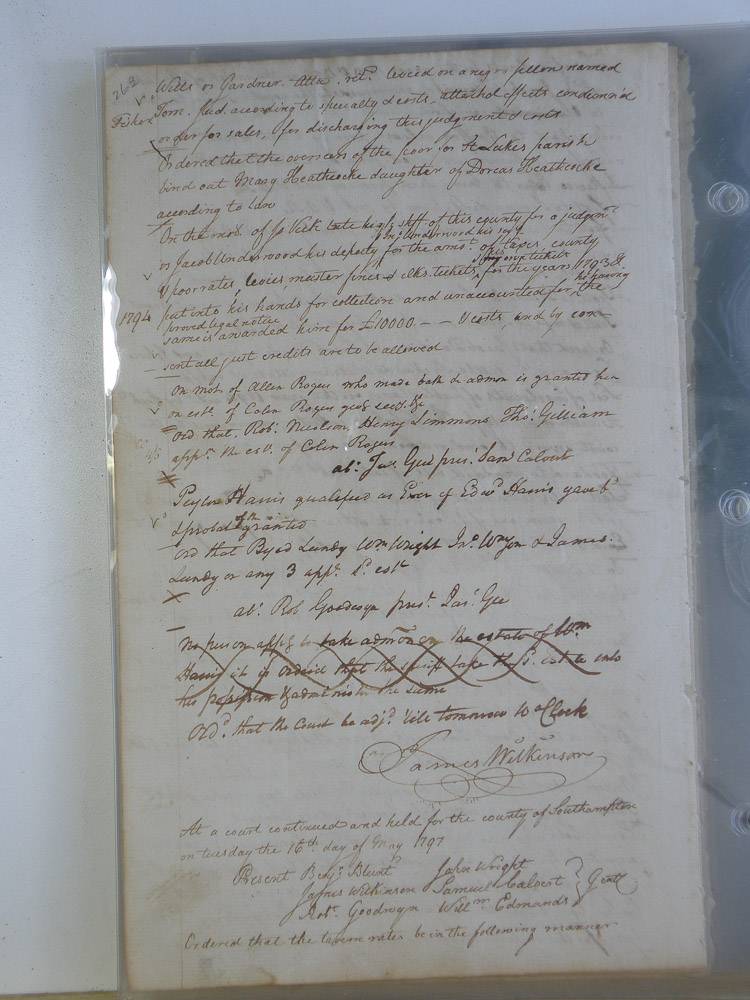 268
Wills vs Gardner. Atta. retd. levied on a negro fellow named
Fisher Tom. Jud. according to specialty & costs, attached effects condemn'd
order for sales, for discharging this judgment & costs
Ordered that the overseers of the poor for St Lukes parish
bind out Mary Heathcocke daughter of Dorcas Heathcocke
according to law
On the mo. of Jo Vick late high shff of this county for a judgmt.
vs Jacob Underwood his deputy for the amot. of taxes, county
& poor rates, levies, muster fines & clks. tickets, for the years 1793 &
1794 put into his hands for collection and unaccounted for, the
proved legal notice
same is awarded him for £10000. — — & costs, and by con-
sent all just credits are to be allowed
On mot. of Allen Rogers who made oath &c admon is granted him
on est. of Colen Rogers gives secy. &c
Ord that, Rob. Nicolson, Henry Simmons, Tho. Gilliam
appr. the est. of Colen Rogers
abt. Jas. Gee pres. Saml Calvert
Harris qualified as Exor of Edwd Harris gave bd.
& probat granted
Ord that Byrd Lundy Wm Wright Jno. & James
Lundy or any 3 appr. sd. est.
abt. Rob Goodwyn prest. Jas. Gee
No person applg to take admon on the estate of Wm
Harris it is ordered that the sheriff take the sd. estate into
his possession & administer the same
Ordd. that the Court be adjd. till tomorrow 10 oClock
James Wilkinson
At a court continued and held for the county of Southampton
on tuesday the 16th day of May 1797
Present Benj. Blunt John Wright
James Wilkinson Samuel Calvert } Gentl
Robt. Goodwyn Willm Edmunds
Ordered that the tavern rates be in the following manner